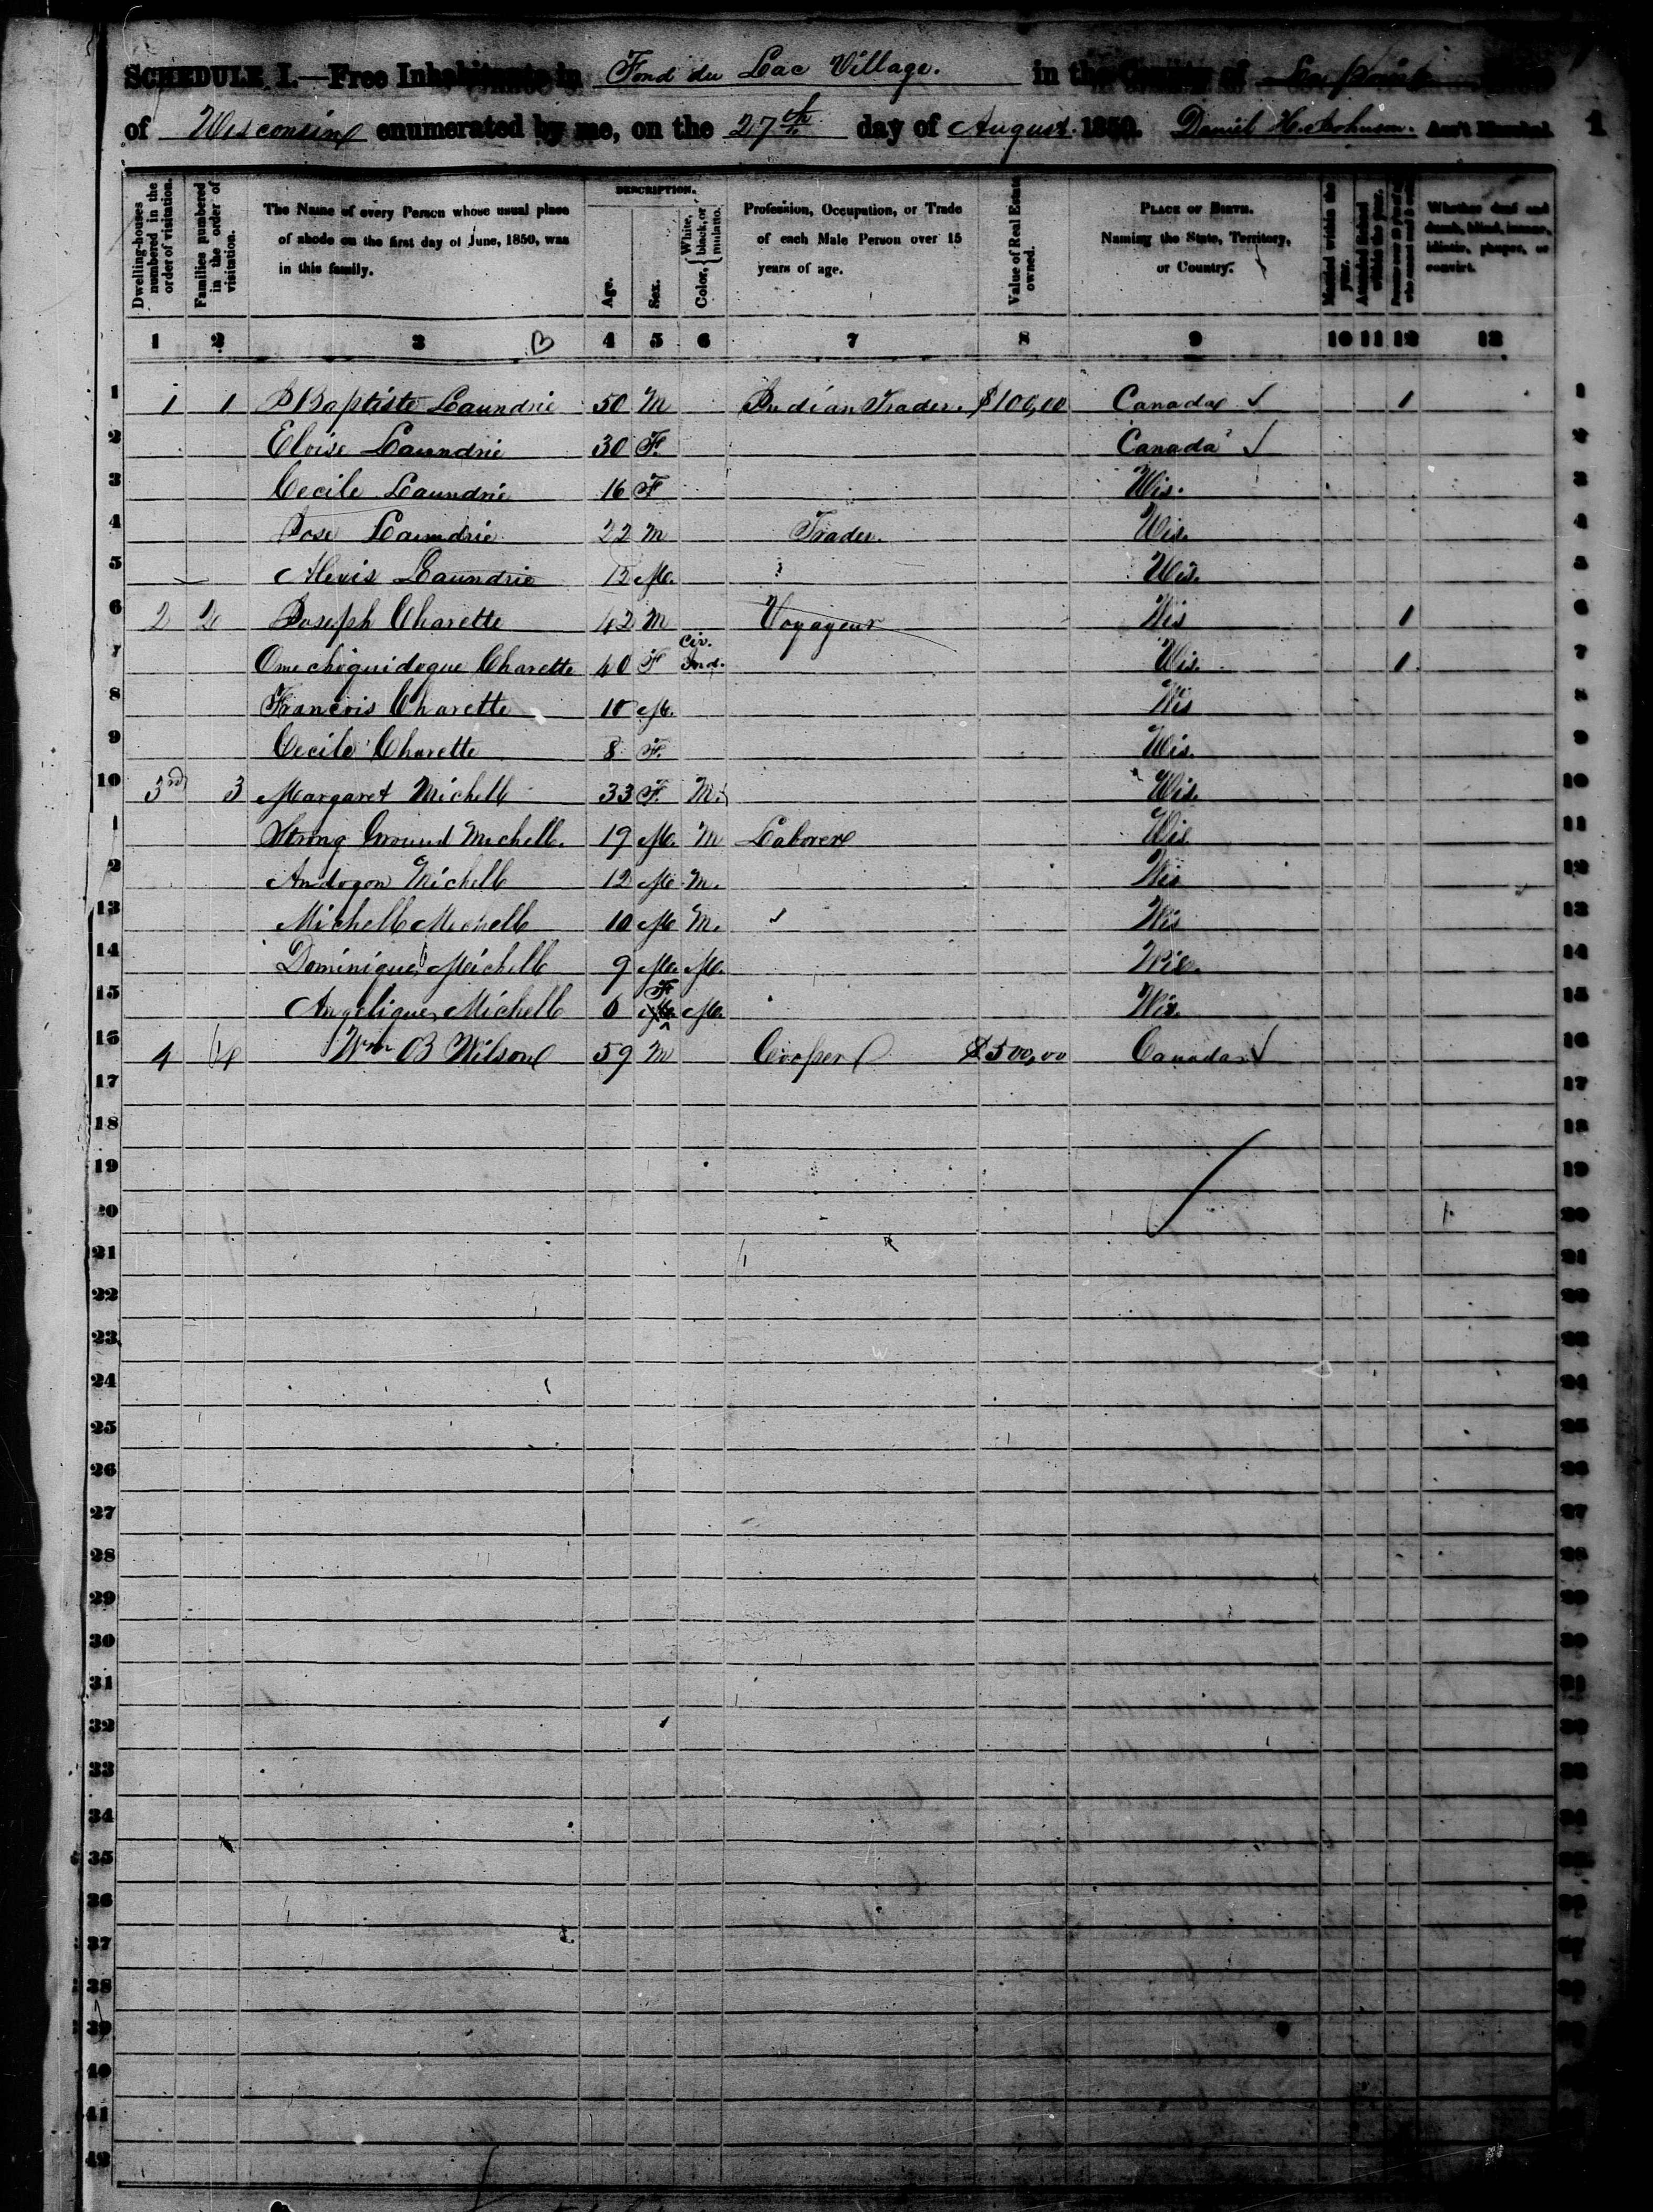 SCHEDULE I.—Free Inhabitants in Fond du Lac Village. in the County of La Pointe
of Wisconsin enumerated by me, on the 27th day of August 1850. Daniel H. Johnson. Ass't Marshal. 1
Dwelling-houses numbered in the order of visitation.
Families numbered in the order of visitation.
The Name of every Person whose usual place of abode on the first day of June, 1850, was in this family.
DESCRIPTION.
Age.
Sex.
Color, White, black, or mulatto.
Profession, Occupation, or Trade of each Male Person over 15 years of age.
Value of Real Estate owned.
PLACE OF BIRTH. Naming the State, Territory, or Country.
Married within the year.
Attended School within the year.
Whether deaf and dumb, blind, insane, idiotic, pauper, or convict.
1 2 3 4 5 6 7 8 9 10 11 12 13
1 1 1 Baptiste Laundrie 50 M Indian Trader. $100,00 Canada 1 1
2 Eloise Laundrie 30 F. Canada 2
3 Cecile Laundrie 16 F Wis. 3
4 Jose Laundrie 22 M Trader. Wis. 4
5 Alexis Laundrie 12 M. Wis. 5
6 2 2 Joseph Charette 42 M Voyageur Wis 1 6
7 Omechoquidoque Charette 40 F Civ. Ind. Wis. 1 7
8 Francois Charette 10 M. Wis 8
9 Cecile Charette 8 F. Wis. 9
10 3rd 3 Margaret Michell 33 F. M. Wis. 10
1 Strong Ground Michell. 19 M. M Laborer Wis 11
2 Andogon Michell 12 M M. Wis 12
13 Michell Michell 10 M M. Wis 13
14 Dominique Michell 9 M. M. Wis. 14
15 Angelique Michell 6 F M. Wis. 15
16 4 4 Wm B Wilson 59 M Cooper $500,00 Canada 16
17 17
18 18
19 19
20 20
21 21
22 22
23 23
24 24
25 25
26 26
27 27
28 28
29 29
30 30
31 31
32 32
33 33
34 34
35 35
36 36
37 37
38 38
39
40
41
42